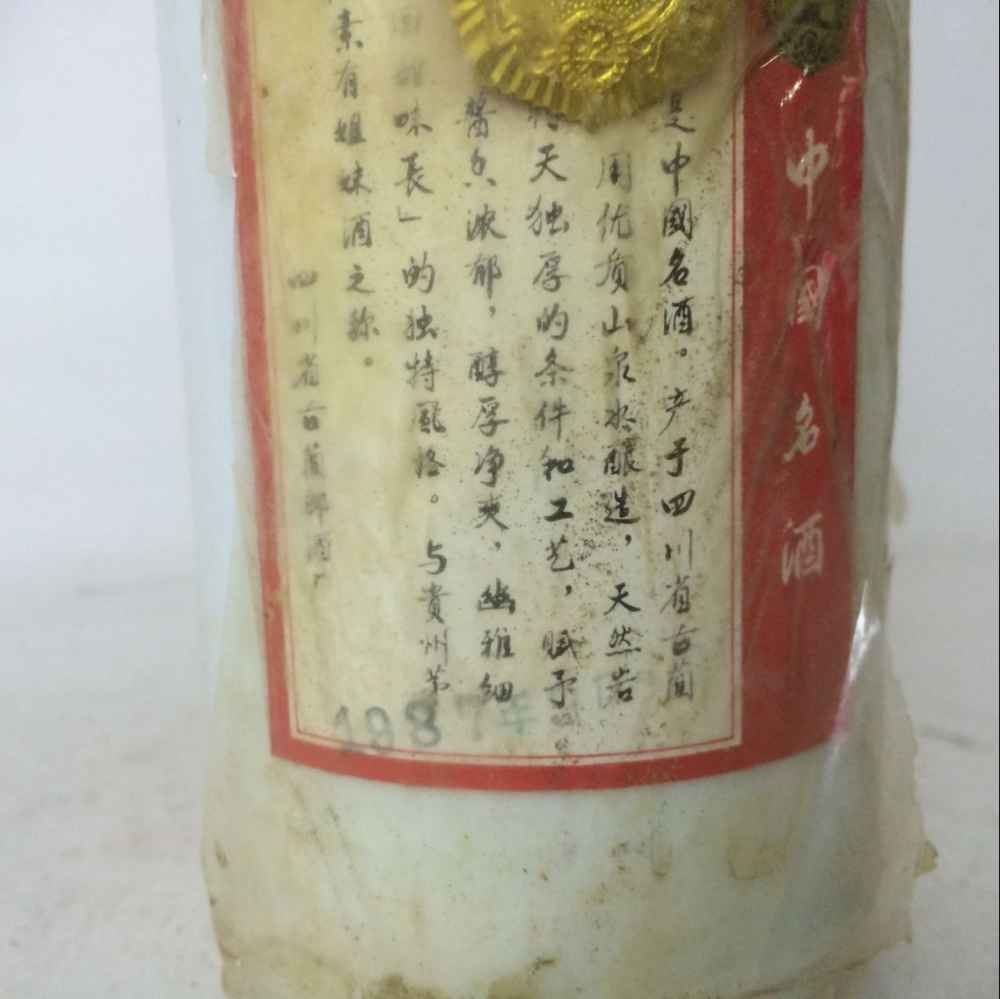 中國名酒
是中國名酒。产于四川省古蔺
用优质山泉水酿造，天然岩
天独厚的条件和工艺，赋予
醬香浓郁，醇厚净爽，幽雅细
味長」的独特風格。与貴州茅
素有姐妹酒之称。
四川省古蔺郎酒厂
1987年